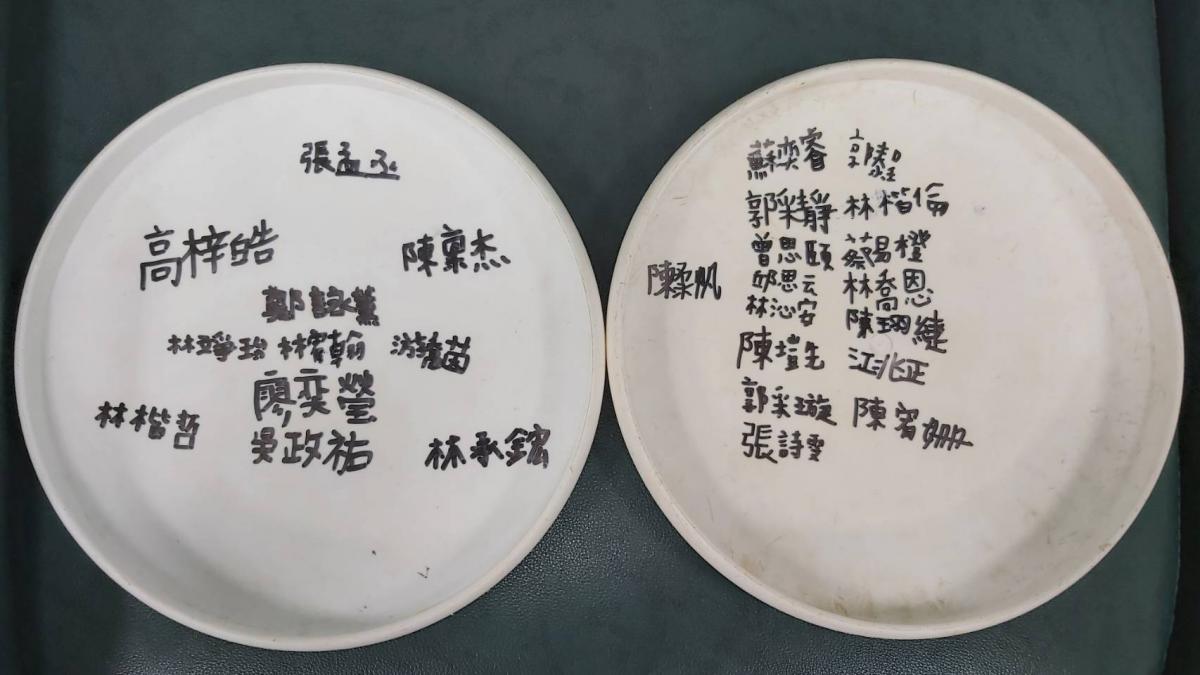 張孟丞
高梓皓 陳稟杰
鄭詠薰
林琤珆 林宥翰
林楷哲 廖奕瑩
吳政祐 林承鋐
蘇奕睿
郭採靜 林楷倫
曾思頤 蔡易橙
邱思云 林喬恩
林沁安 陳翊緁
陳柔帆
陳塏先 江兆正
郭采璇 陳宥姍
張詩雯